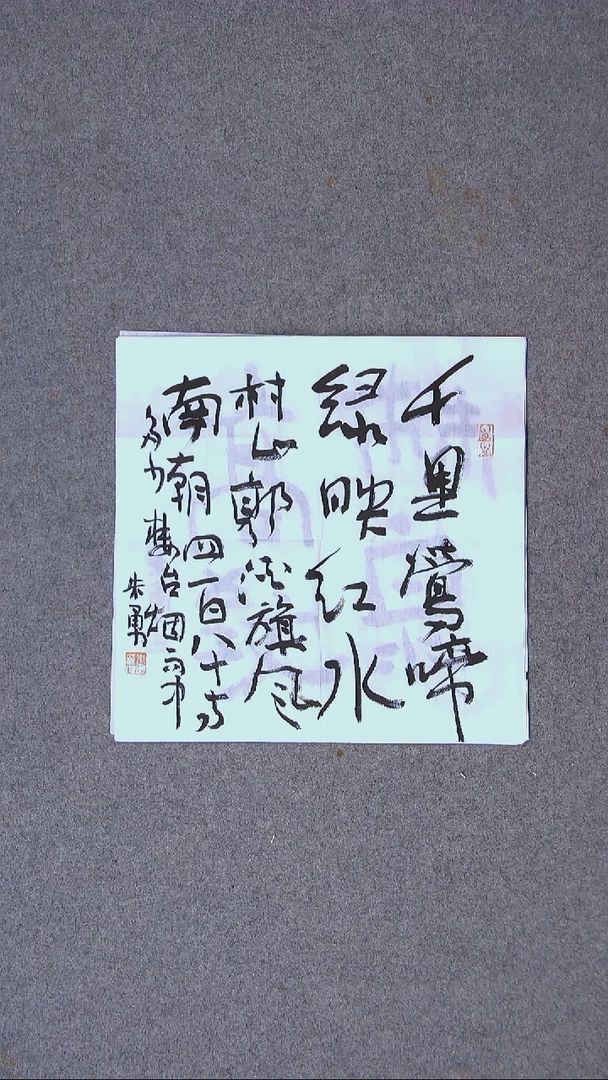 千里鶯啼
绿映红水
村山郭酒旗风
南朝四百八十寺
多少楼台烟雨中
朱勇